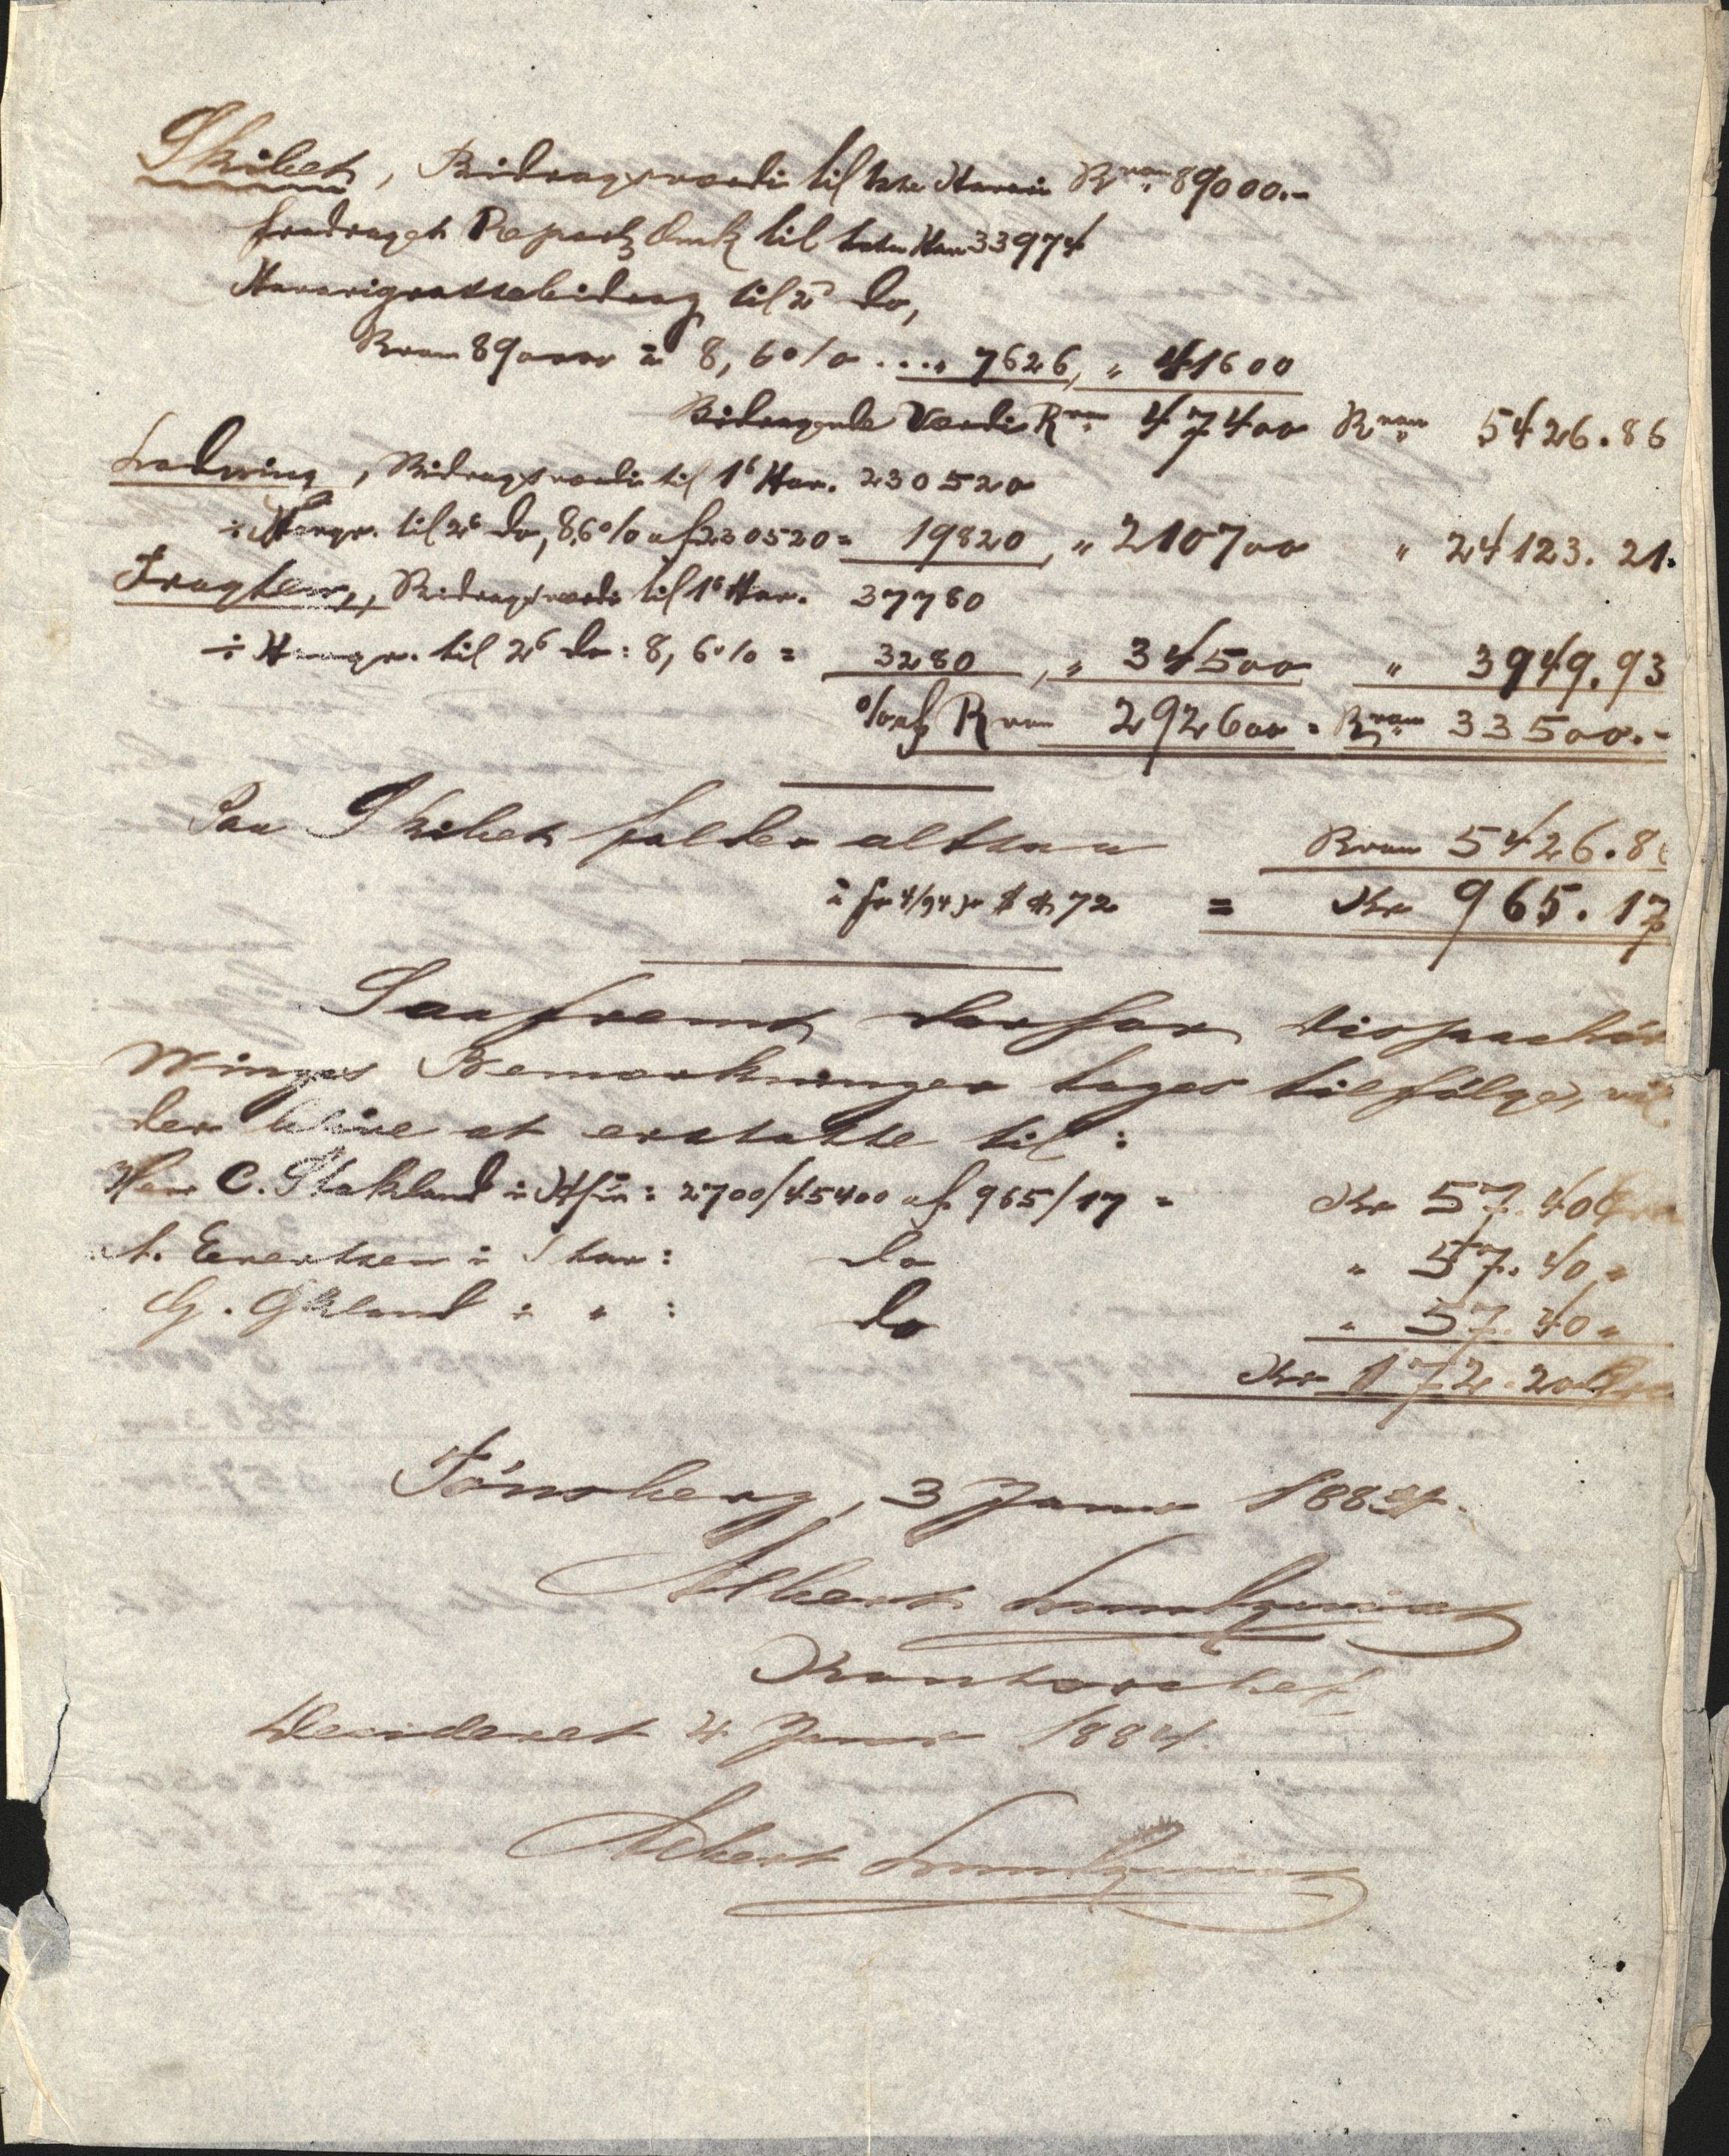 Skibet, Bidragsværdi til 1ste Havari Rm 89000.-
fradraget Repart Omk til 1ste Hav 33974
Havarigrossebidrag til 2 do,
89000 à 8,6 % .... 7626, " 41600
Bidragende Værdi Rm 47400 Rm 5426.86
Ladning, Bidragsværdi til 1ª Hav. 230520
÷ Havgr. til 2ª do, 8,6 % af 230520 = 19820, " 210700 " 24123.21.
Fragten, Bidragsværdi til 1ª Hav. 37780
÷ Havgr. til 2ª do: 8,6 % = 3280, " 34500 " 3949.93
% af 292600 = 33500.-
Paa Skibet falder altsaa 5426.8
= Kr 965.17
Saafremt derfor Dispachör
Winges Bemærkninger tages tilfölge, vil
der blive at erstatte til:
Herr C. Stakland i : 2700/45400 af 965/17 = Kr 57.40
Evertsen i : do " 57.40 "
G. Økland i " : do " 57.40 "
Kr 172.20
Tönsberg, 3 Januar 1884.
Albert Lundqvist
Kontorchef
Decideret 4 Januar 1884.
Albert Lundqvist